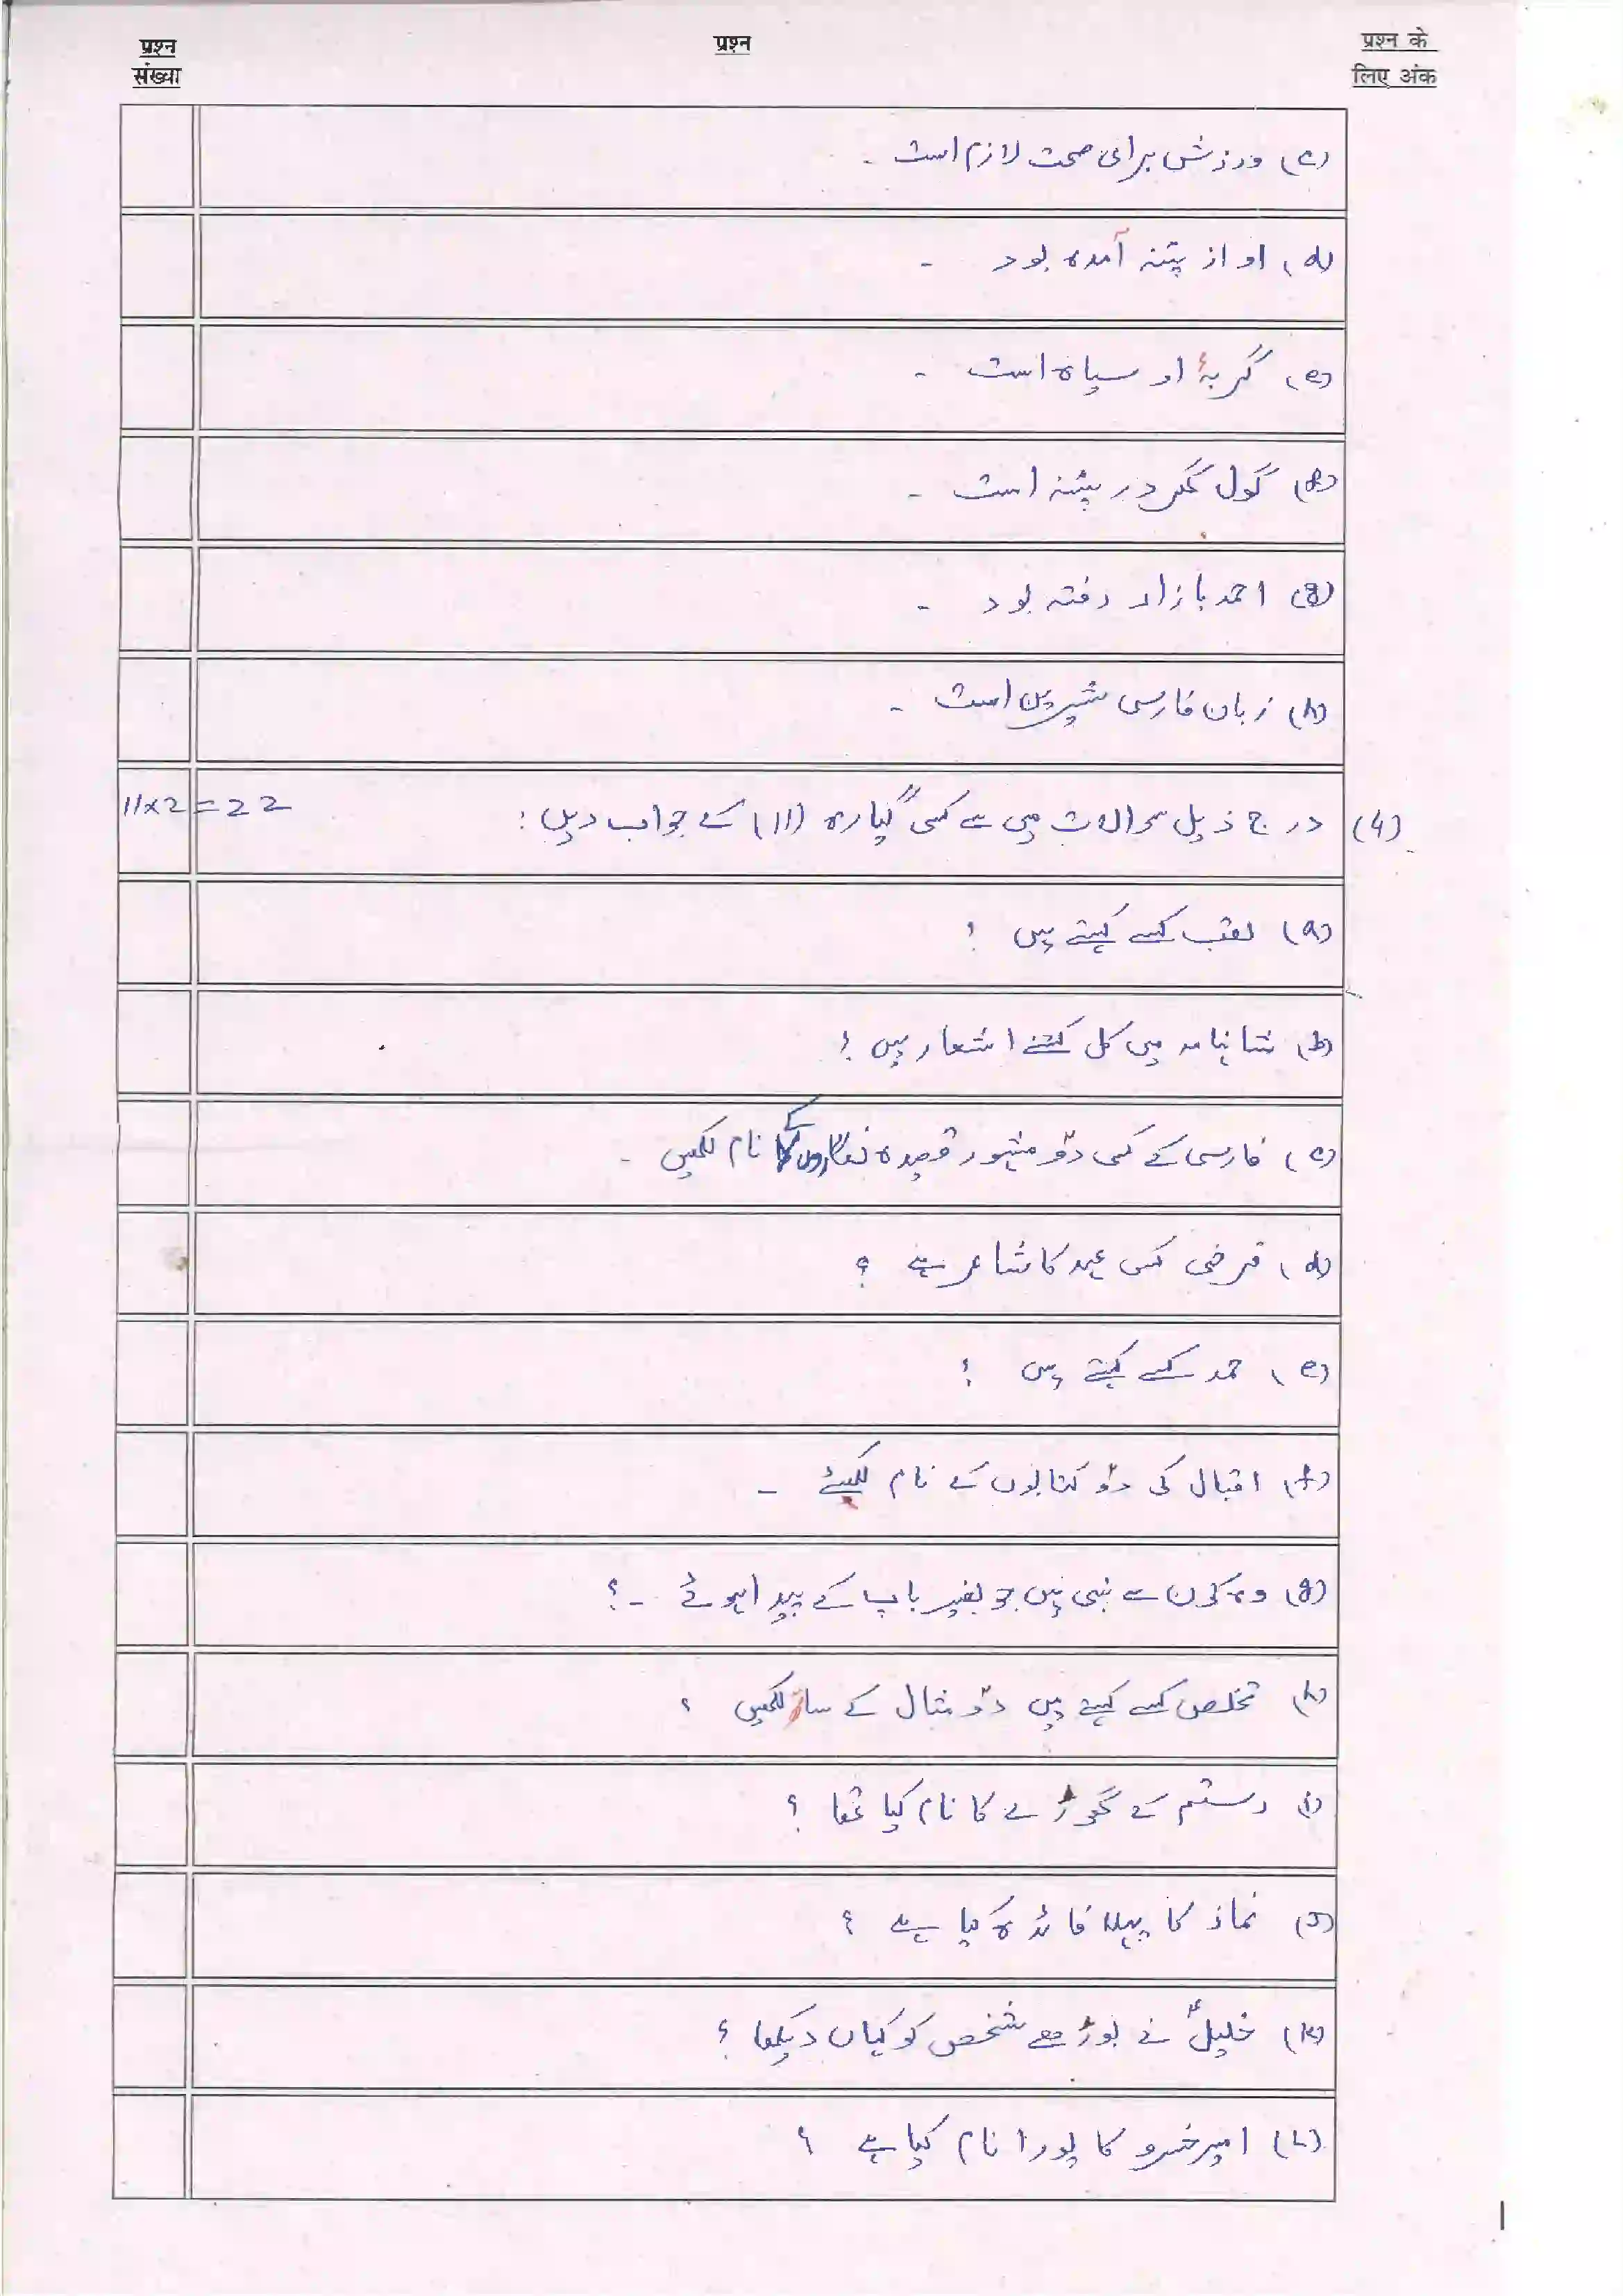 प्रश्न संख्या
प्रश्न
प्रश्न के लिए अंक
(c) ورزش برای صحت لازم است ۔
(d) او از پٹنہ آمدہ بود ۔
(e) گربۂ او سیاہ است ۔
(f) گول گھر در پٹنہ است ۔
(g) احمد بازار رفتہ بود ۔
(h) زبان فارسی شیریں است ۔
(4) درج ذیل سوالات میں سے کسی گیارہ (11) کے جواب دیں : 11x2=22
(a) لقب کسے کہتے ہیں ؟
(b) شاہنامہ میں کل کتنے اشعار ہیں ؟
(c) فارسی کے کسی دو مشہور قصیدہ نگاروں کے نام لکھیں ۔
(d) فرخی کس عہد کا شاعر ہے ؟
(e) حمد کسے کہتے ہیں ؟
(f) اقبال کی دو کتابوں کے نام لکھیئے ۔
(g) وہ کون سے نبی ہیں جو بغیر باپ کے پیدا ہوئے ۔؟
(h) تخلص کسے کہتے ہیں دو مثال کے ساتھ لکھیں ؟
(i) رستم کے گھوڑے کا نام کیا تھا ؟
(J) نماز کا پہلا فائدہ کیا ہے ؟
(K) خلیلؑ نے بوڑھے شخص کو کہاں دیکھا ؟
(L) امیر خسرو کا پورا نام کیا ہے ؟